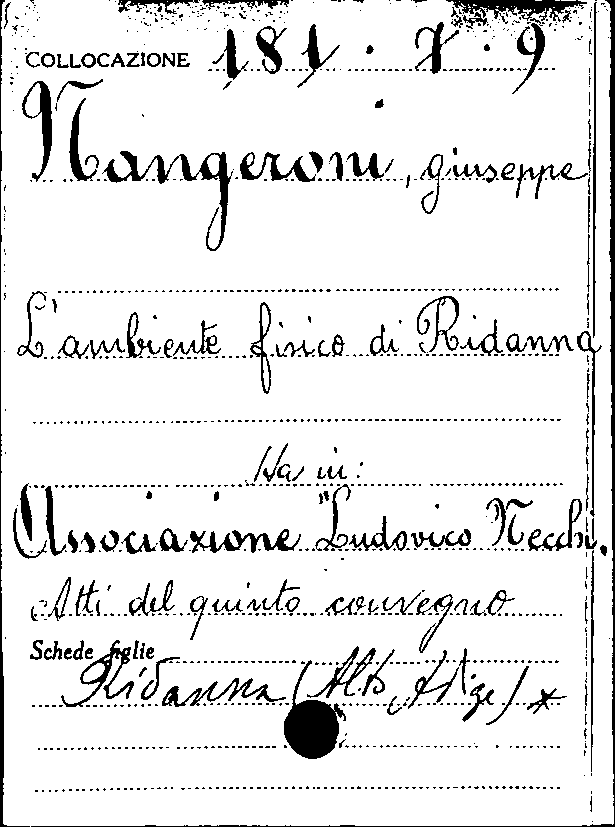 COLLOCAZIONE 181 . 7 . 9
Nangeroni, giuseppe
L'ambiente fisico di Ridanna
Sta in:
Associazione "Ludovico Necchi.
Atti del quinto convegno
Schede figlie
Ridanna (Alto Adige) *